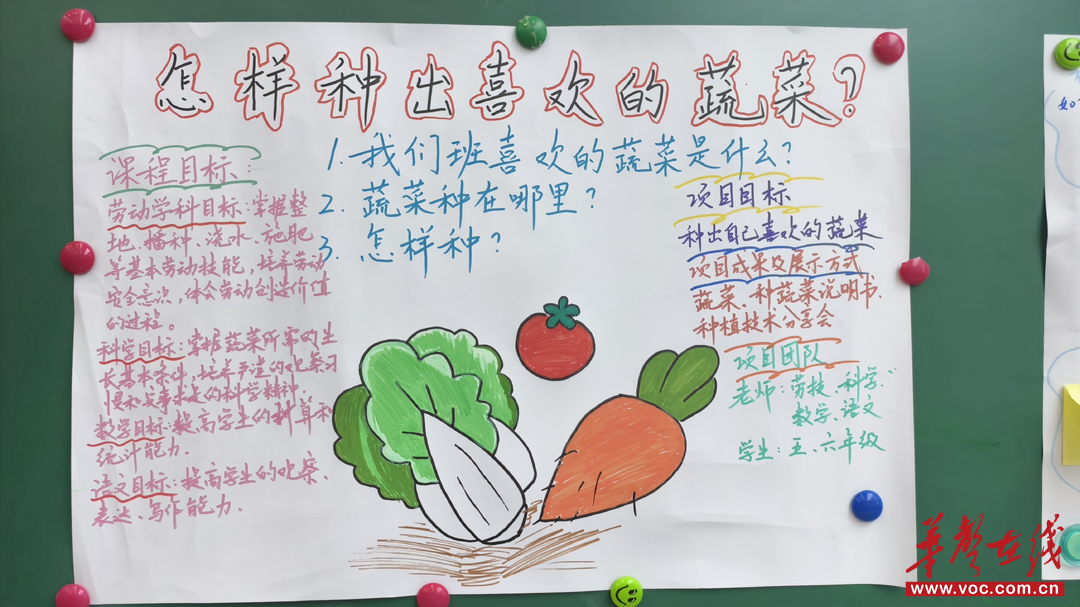 怎样种出喜欢的蔬菜?
1. 我们班喜欢的蔬菜是什么?
2. 蔬菜种在哪里?
3. 怎样种?
课程目标:
劳动学科目标:掌握整
地、播种、浇水、施肥
等基本劳动技能,培养劳动
安全意识,体会劳动创造价值
的过程。
科学目标:掌握蔬菜所需的生
长基本条件,培养严谨的观察习
惯和实事求是的科学精神.
数学目标:提高学生的计算和
统计能力.
语文目标:提高学生的观察、
表达、写作能力.
项目目标
种出自己喜欢的蔬菜
项目成果及展示方式
蔬菜、种蔬菜说明书、
种植技术分享会
项目团队
老师:劳技、科学、
数学、语文
学生:五、六年级
华声在线
www.voc.com.cn
如